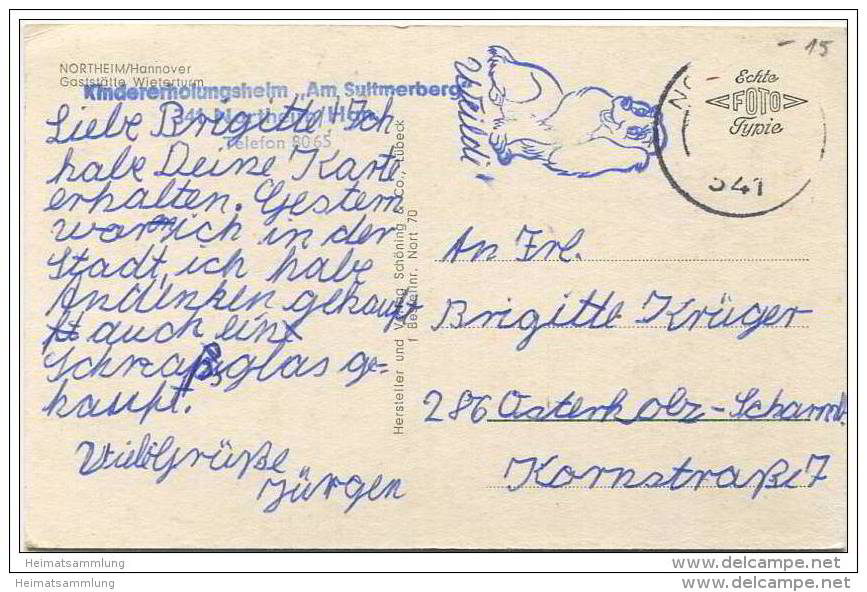 NORTHEIM/Hannover
Gaststätte Wieterturm
Kindererholungsheim „Am Sultmerberg"
341 Northeim/Han.
Telefon 8065
Liebe Brigitte! Ich
habe Deine Karte
erhalten. Gestern
war ich in der
Stadt, ich habe
Andenken gekaupt
auch ein
glas ge-
kaupt.
Viele Grüße
Jürgen
Hersteller und Verlag Schöning & Co., Lübeck
f Bestellnr. Nort 70
Echte
FOTO
Typie
341
- 15
An Frl.
Brigitte Krüger
286 Osterholz-Scharmb.
Kornstraße 7
Heimatsammlung
Heimatsammlung
www.delcampe.net
www.delcampe.net